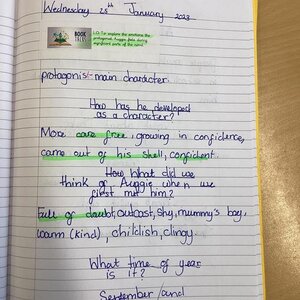 Wednesday 25th January 2023
BOOK TALK
L.O: To explore the emotions the
protagonist, Auggie feels during
significant parts of the novel.
protagonist - main character.
How has he developed
as a character?
More care free, growing in confidence,
came out of his shell, confident.
How What did we
think of Auggie when we
first met him?
Full of doubt, outcast, shy, mummy's boy,
warm (kind), childish, clingy.
What time of year
is it?
September/and